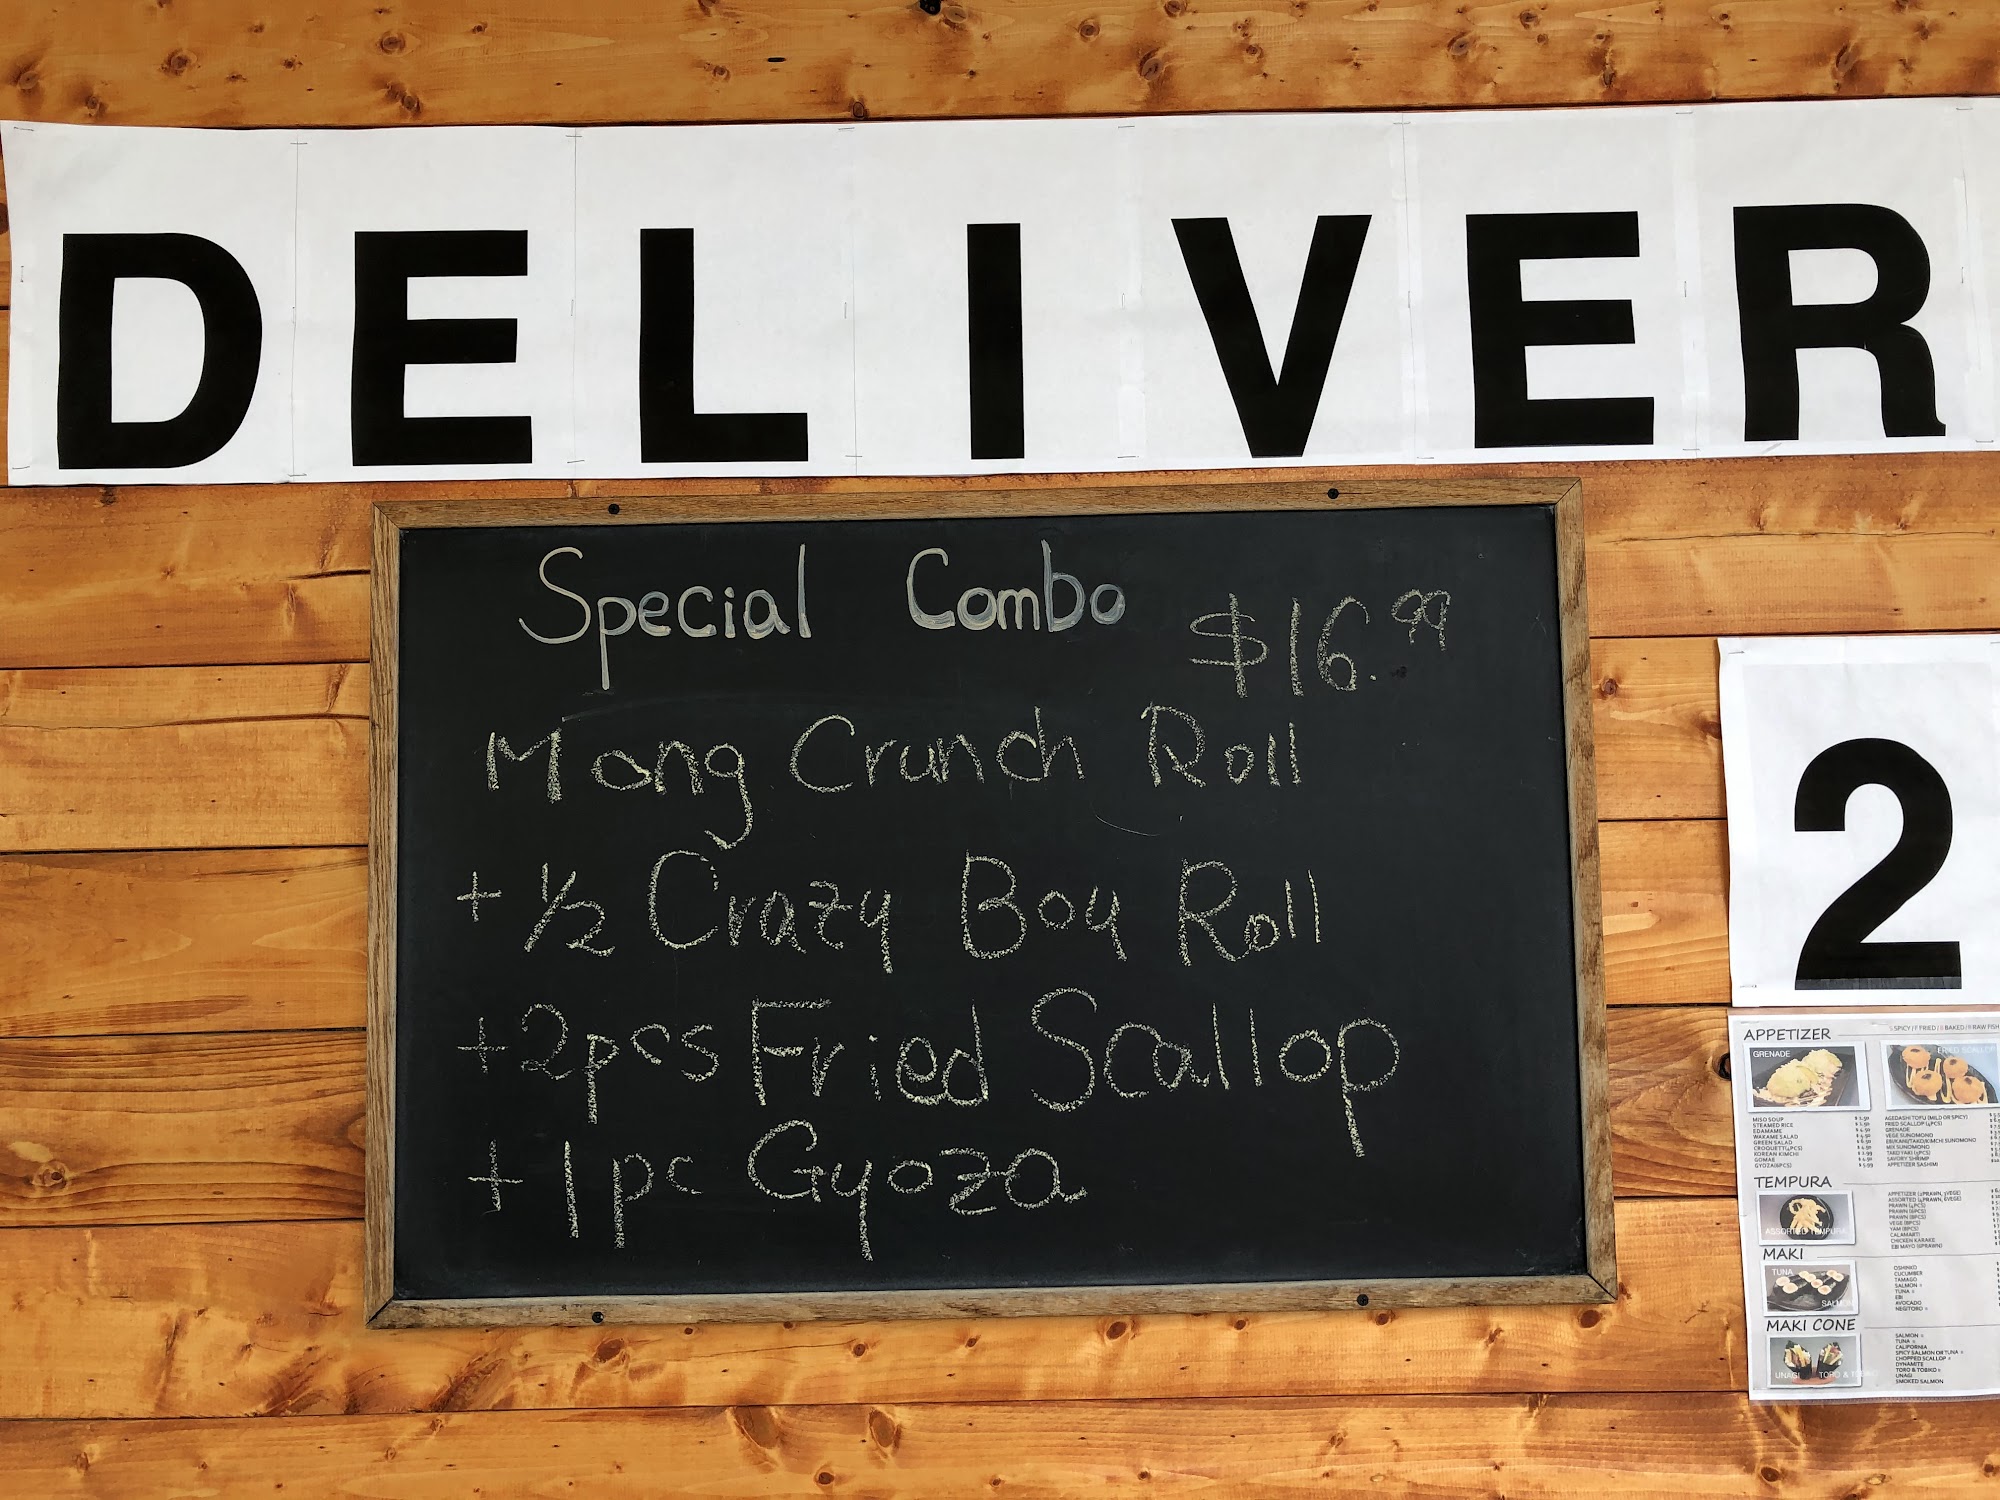 DELIVER
Special Combo $16.99
Mang Crunch Roll
+ 1/2 Crazy Boy Roll
+2pcs Fried Scallop
+ 1pc Gyoza
2
APPETIZER
GRENADE
FRIED SCALLOP
MISO SOUP
STEAMED RICE
EDAMAME
WAKAME SALAD
GREEN SALAD
CROQUETT(4PCS)
KOREAN KIMCHI
GOMAE
GYOZA(6PCS)
AGEDASHI TOFU (MILD OR SPICY)
FRIED SCALLOP (4PCS)
GRENADE
VEGE SUNOMONO
EBI/KANI/TAKO/KIMCHI SUNOMONO
MIX SUNOMONO
TAKO YAKI (5PCS)
SAVORY SHRIMP
APPETIZER SASHIMI
TEMPURA
ASSORTED TEMPURA
APPETIZER (2PRAWN, 3VEGE)
ASSORTED (4PRAWN, 6VEGE)
PRAWN (4PCS)
PRAWN (6PCS)
PRAWN (8PCS)
VEGE (8PCS)
YAM (8PCS)
CALAMARI
CHICKEN KARAKE
EBI MAYO (6PRAWN)
MAKI
TUNA
SALMON
OSHINKO
CUCUMBER
TAMAGO
SALMON
TUNA
EBI
AVOCADO
NEGITORO
MAKI CONE
UNAGI
SALMON
TUNA
CALIFORNIA
SPICY SALMON OR TUNA
CHOPPED SCALLOP
DYNAMITE
TORO & TOBIKO
UNAGI
SMOKED SALMON